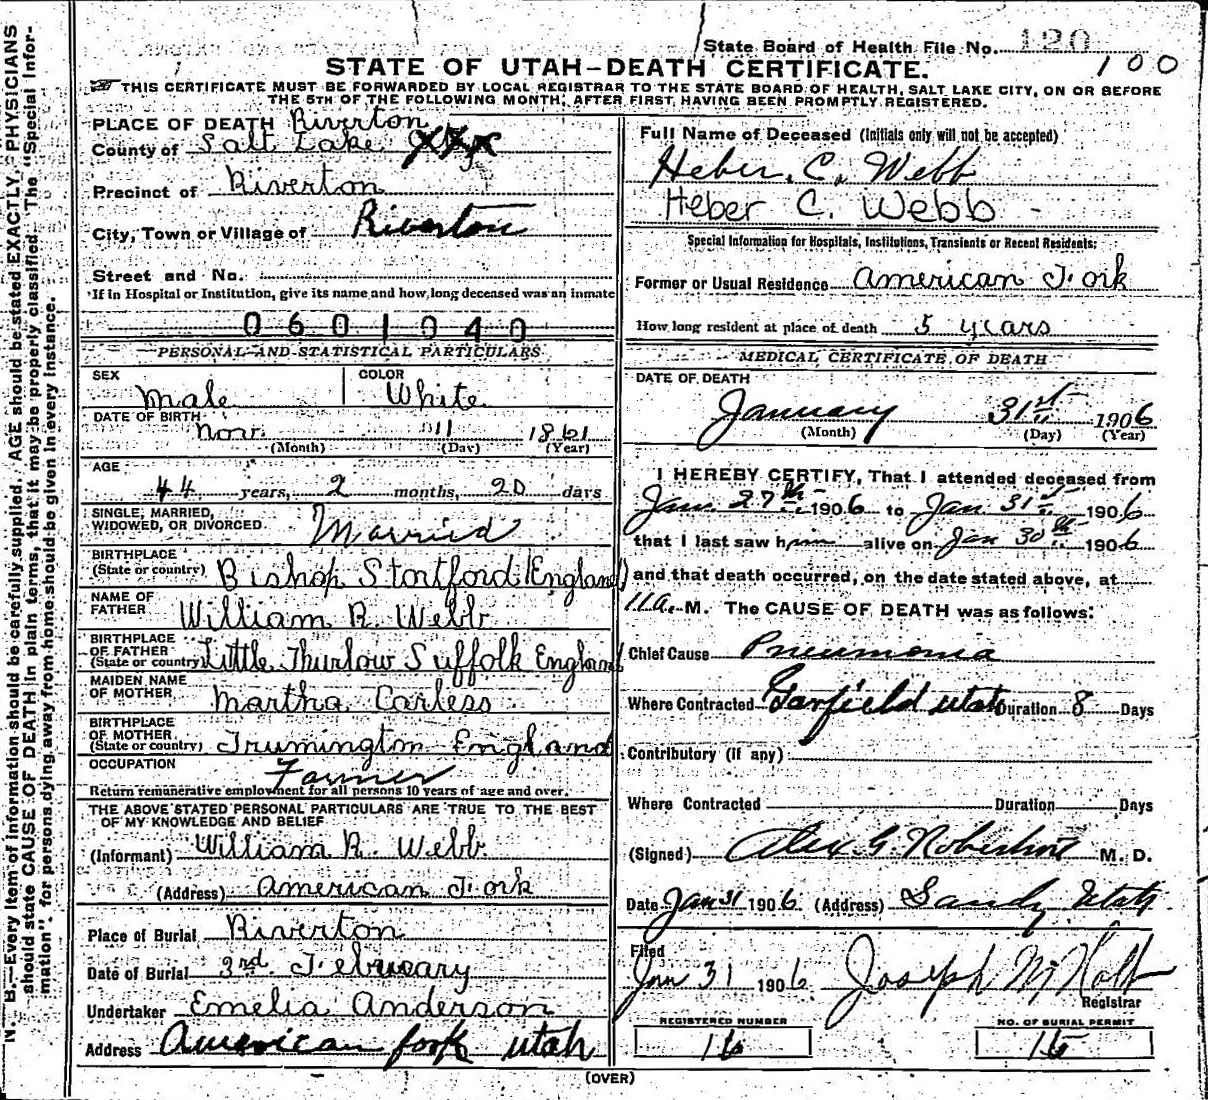 State Board of Health File No. 120
100
STATE OF UTAH—DEATH CERTIFICATE.
THIS CERTIFICATE MUST BE FORWARDED BY LOCAL REGISTRAR TO THE STATE BOARD OF HEALTH, SALT LAKE CITY, ON OR BEFORE
THE 5TH OF THE FOLLOWING MONTH, AFTER FIRST HAVING BEEN PROMPTLY REGISTERED.
N. B.—Every item of information should be carefully supplied. AGE should be stated EXACTLY. PHYSICIANS
should state CAUSE OF DEATH in plain terms, that it may be properly classified. The "Special Infor-
mation" for persons dying away from home should be given in every instance.
PLACE OF DEATH Riverton
County of Salt Lake
Precinct of Riverton
City, Town or Village of Riverton
Street and No.
If in Hospital or Institution, give its name and how long deceased was an inmate
0601040
PERSONAL AND STATISTICAL PARTICULARS
SEX Male COLOR White
DATE OF BIRTH Nov. 11 1861
(Month) (Day) (Year)
AGE
44 years, 2 months, 20 days
SINGLE, MARRIED,
WIDOWED, OR DIVORCED Married
BIRTHPLACE
(State or country) Bishop Stortford (England)
NAME OF
FATHER William R. Webb
BIRTHPLACE
OF FATHER
(State or country) Little Thurlow Suffolk England
MAIDEN NAME
OF MOTHER Martha Carless
BIRTHPLACE
OF MOTHER
(State or country) Trumington England
OCCUPATION Farmer
Return remunerative employment for all persons 10 years of age and over.
THE ABOVE STATED PERSONAL PARTICULARS ARE TRUE TO THE BEST
OF MY KNOWLEDGE AND BELIEF
(Informant) William R. Webb.
(Address) American Fork
Place of Burial Riverton
Date of Burial 3rd February
Undertaker Emelia Anderson
Address American fork utah
Full Name of Deceased (Initials only will not be accepted)
Heber. C. Webb
Heber C. Webb -
Special Information for Hospitals, Institutions, Transients or Recent Residents:
Former or Usual Residence American Fork
How long resident at place of death 5 years
MEDICAL CERTIFICATE OF DEATH
DATE OF DEATH
January 31st 1906
(Month) (Day) (Year)
I HEREBY CERTIFY, That I attended deceased from
Jan. 27th 1906 to Jan. 31st 1906
that I last saw him alive on Jan 30th 1906
and that death occurred, on the date stated above, at
11 a. M. The CAUSE OF DEATH was as follows:
Chief Cause Pneumonia
Where Contracted Garfield utah Duration 8 Days
Contributory (if any)
Where Contracted Duration Days
(Signed) Alex. G. Robertson M. D.
Date Jan 31 1906. (Address) Sandy Utah
Filed
Jan 31 1906 Joseph M. Holt
Registrar
REGISTERED NUMBER NO. OF BURIAL PERMIT
16 15
(OVER)